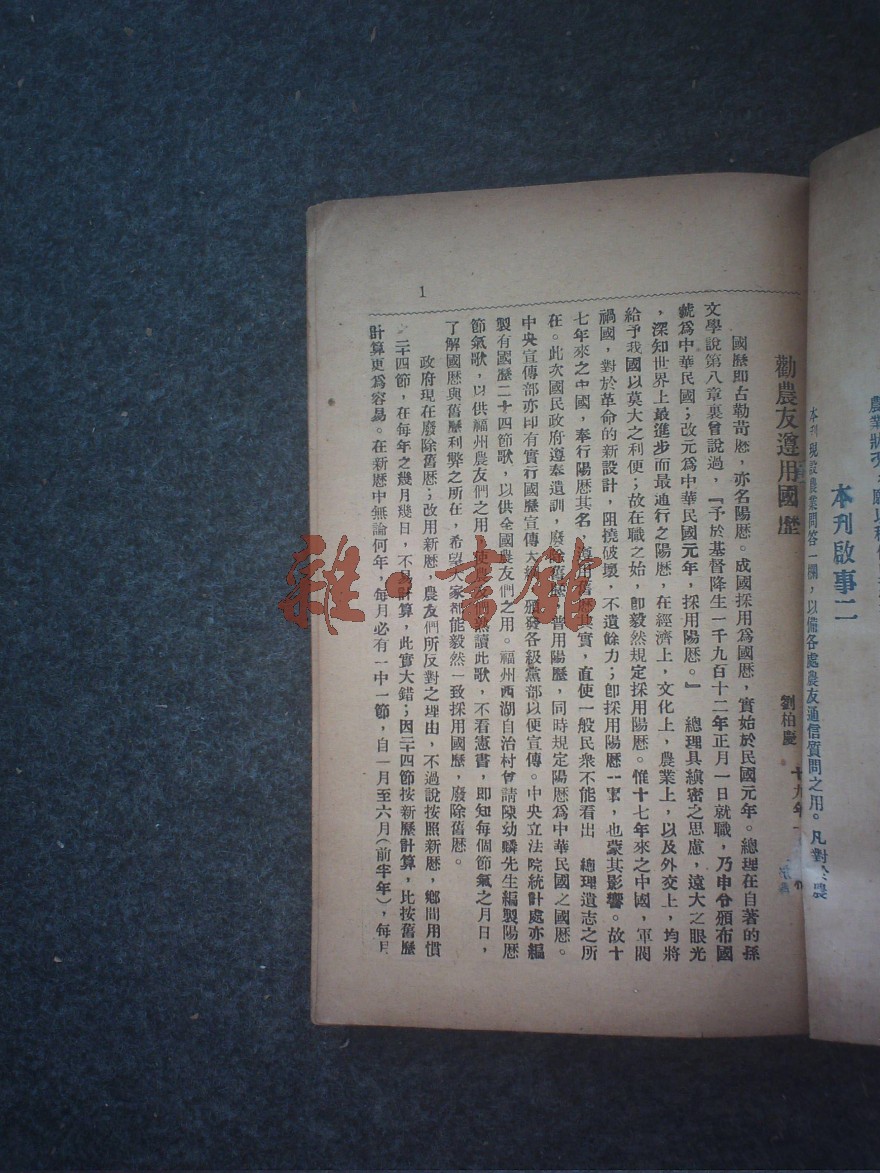 農業狀況
本刊啟事二
本刊現設農業問答一欄，以備各處農友通信質問之用。凡對於農
勸農友遵用國歷
劉柏慶
十九年
國歷即古勒苛歷，亦名陽歷。成國採用爲國歷，實始於民國元年。總理在自著的孫
文學說第八章裏曾說過，『予於基督降生一千九百十二年正月一日就職，乃申令頒布國
號爲中華民國；改元爲中華民國元年，採用陽歷。』　總理具縝密之思慮，遠大之眼光
，深知世界上最進步而最通行之陽歷，在經濟上，文化上，農業上，以及外交上，均將
給予我國以莫大之利便；故在職之始，卽毅然規定採用陽歷。惟十七年來之中國，軍閥
禍國，對於革命的新設計，阻撓破壞，不遺餘力；卽採用陽歷一事，也蒙其影響。故十
七年來之中國，奉行陽歷其名，遵用舊歷其實，直使一般民衆不能看出　總理遺志之所
在。此次國民政府遵奉遺訓，廢除舊歷，普用陽歷，同時規定陽歷爲中華民國之國歷。
中央宣傳部亦印有實行國歷宣傳大綱，頒發各級黨部以便宣傳。中央立法院統計處亦編
製有國歷二十四節歌，以供全國農友們之用。福州西湖自治村曾請陳幼麟先生編製陽歷
節氣歌，以供福州農友們之用，使農友們熟讀此歌，不看憲書，即知每個節氣之月日，
了解國歷與舊歷利弊之所在，希望大家都能毅然一致採用國歷，廢除舊歷。
政府現在廢除舊歷；改用新歷，農友們所反對之理由，不過說按照新歷，鄉間用慣
之二十四節，在每年之幾月幾日，不易計算，此實大錯；因二十四節按新歷計算，比按舊歷
計算更爲容易。在新歷中無論何年，每月必有一中一節，自一月至六月（前半年），每月
1
雜·書館